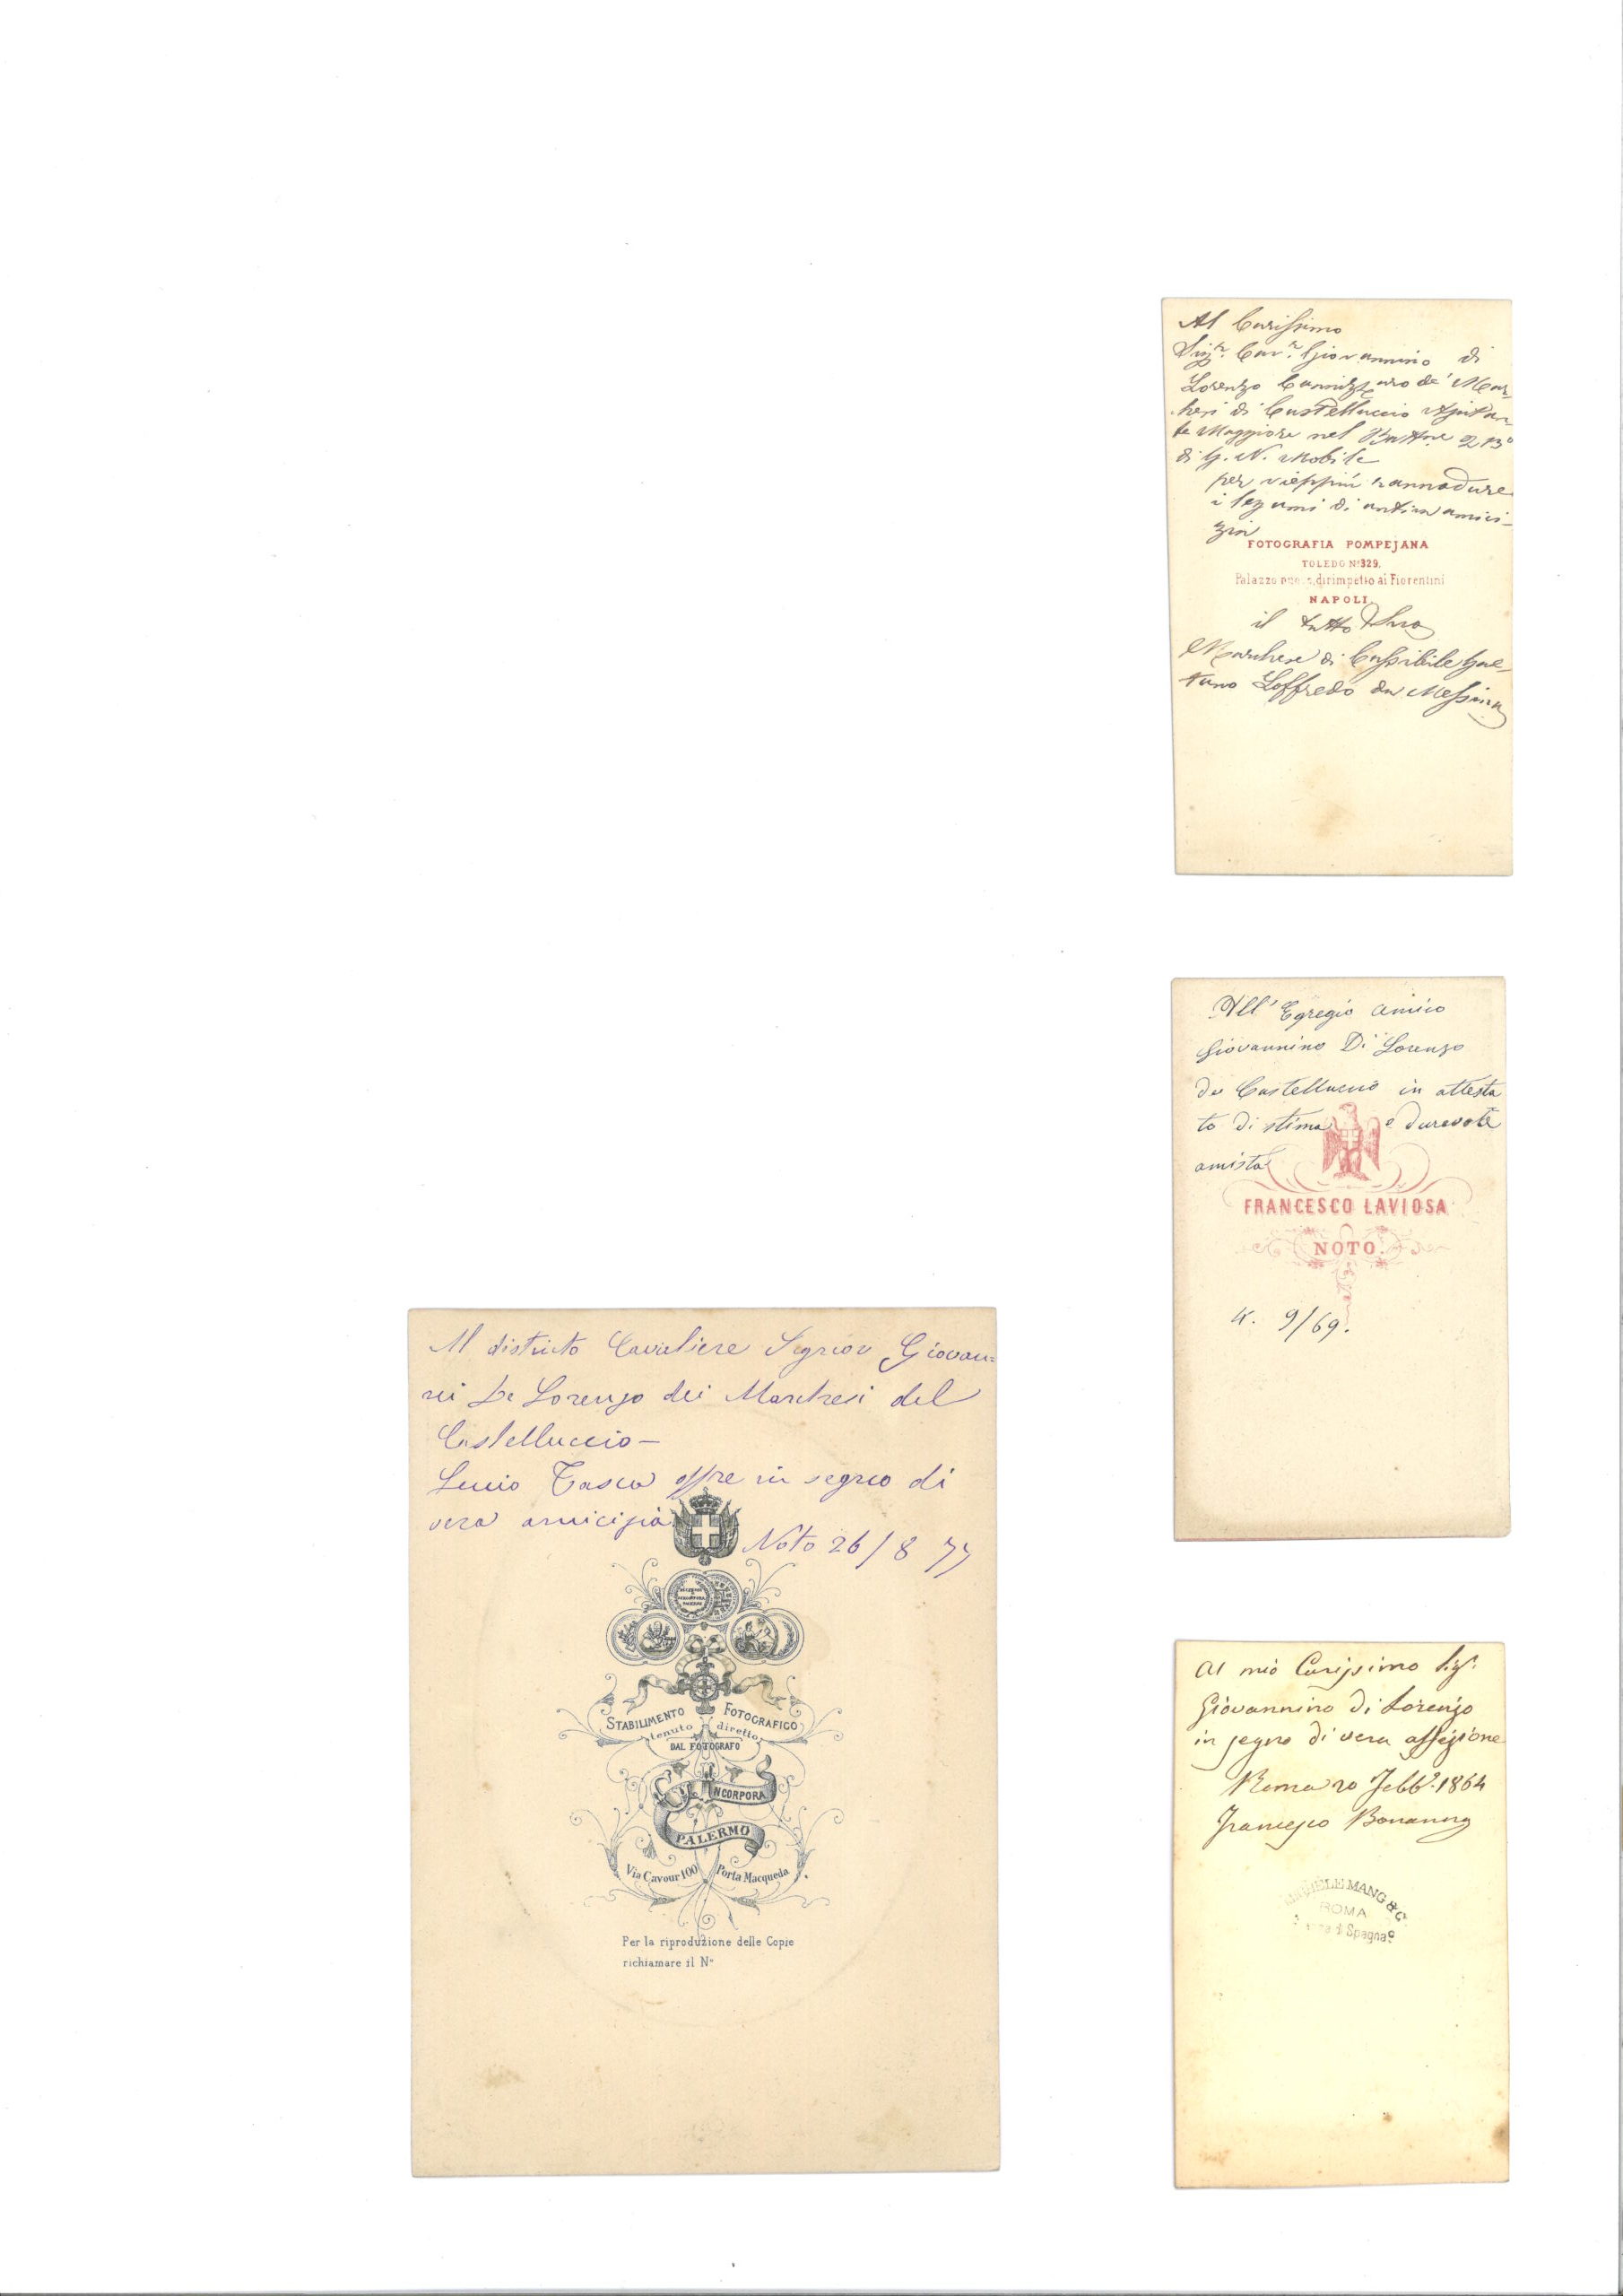 Al Carissimo
Sigr. Cavr. Giovannino di
Lorenzo Cannizzaro de' Mar-
chesi di Castelluccio Ajutan-
te Maggiore nel 213°
di G. N. Mobile
per vieppiú rannodare
i legami di antica amici-
zia
FOTOGRAFIA POMPEJANA
TOLEDO No 329.
Palazzo dirimpetto ai Fiorentini
NAPOLI.
il tutto Suo
Marchese di Cassibile Gae-
tano Loffredo da Messina
All' Egregio amico
Giovannino Di Lorenzo
de Castelluccio in attesta
to di stima e durevole
amistà
FRANCESCO LAVIOSA
NOTO.
9/69.
Al distinto Cavaliere Signor Giovan=
ni De Lorenzo dei Marchesi del
Castelluccio —
Lucio Tasca offre in segno di
vera amicizia
Noto 26/8 77
STABILIMENTO FOTOGRAFICO
tenuto e diretto
DAL FOTOGRAFO
INCORPORA
PALERMO
Via Cavour 100 Porta Macqueda
Per la riproduzione delle Copie
richiamare il No
Al mio Carissimo Sigr.
Giovannino di Lorenzo
in segno di vera affezione
Roma 20 Febbo. 1864
Francesco Bonanno
MANG & C.
ROMA
di Spagna